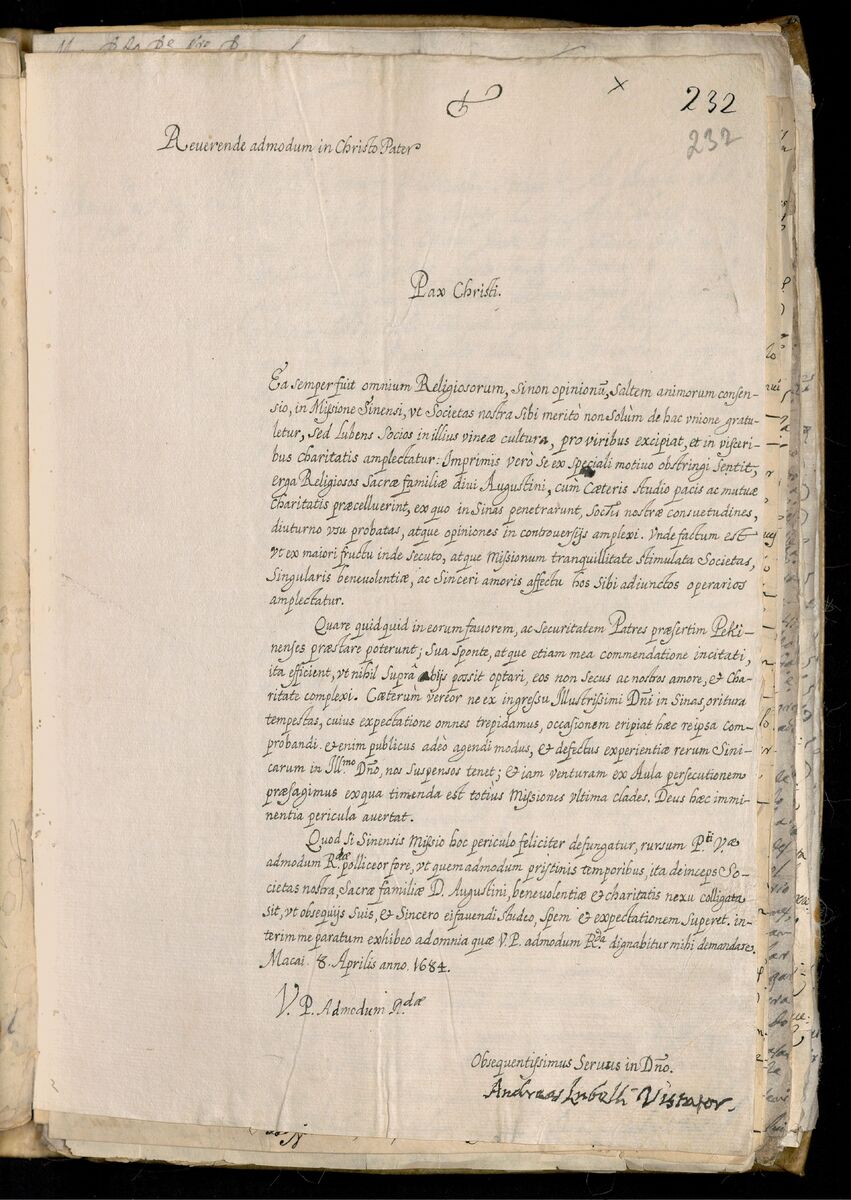 232
232
Reuerende admodum in Christo Pater
Pax Christi.
Ea semper fuit omnium Religiosorum, si non opinionũ, saltem animorum consen-
sio, in Missione Sinensi, vt Societas nostra sibi meritò non solùm de hac vnione gratu-
letur, sed Lubens Socios in illius vineæ cultura, pro viribus excipiat, et in visceri-
bus charitatis amplectatur: Imprimis verò se ex speciali motiuo obstringi sentit,
erga Religiosos Sacræ familiæ diui Augustini, cum Cæteris studio pacis ac mutuæ
charitatis præcelluerint, ex quo in Sinas penetrarunt, Soctis nostræ consuetudines,
diuturno vsu probatas, atque opiniones in controuersijs amplexi. Vnde factum est
vt ex maiori fructu inde secuto, atque Missionum tranquillitate stimulata Societas,
singularis beneuolentiæ, ac sinceri amoris affectu hos sibi adiunctos operarios
amplectatur.
Quare quidquid in eorum fauorem, ac securitatem Patres præsertim Peki-
nenses præstare poterunt; sua sponte, atque etiam mea commendatione incitati,
ita efficient, vt nihil suprà abijs possit optari, eos non secus ac nostros amore, & cha-
ritate complexi. Cæterùm vereor ne ex ingressu Illustrissimi Dñi in Sinas, oritura
tempestas, cuius expectatione omnes trepidamus, occasionem eripiat hæc reipsa com-
probandi. etenim publicus adeò agendi modus, & defectus experientiæ rerum Sini-
carum in Ill.mo Dño, nos suspensos tenet; & iam venturam ex Aula persecutionem
præsagimus ex qua timenda est totius Missiones vltima clades. Deus hæc immi-
nentia pericula auertat.
Quod si Sinensis Missio hoc periculo feliciter defungatur, rursum P.ti V.æ
admodum R.dæ polliceor fore, vt quemadmodum pristinis temporibus, ita deinceps So-
cietas nostra, Sacræ familiæ D. Augustini, beneuolentiæ & charitatis nexu colligata
sit, vt obsequijs suis, & sincero ei fauendi studeo, spem & expectationem superet. in-
terim me paratum exhibeo ad omnia quæ V.P. admodum R.da dignabitur mihi demandare.
Macai 8. Aprilis anno 1684.
V. P. Admodum R.dæ
Obsequentissimus Seruus in Dño.
Andreas Lubelli Visitator.